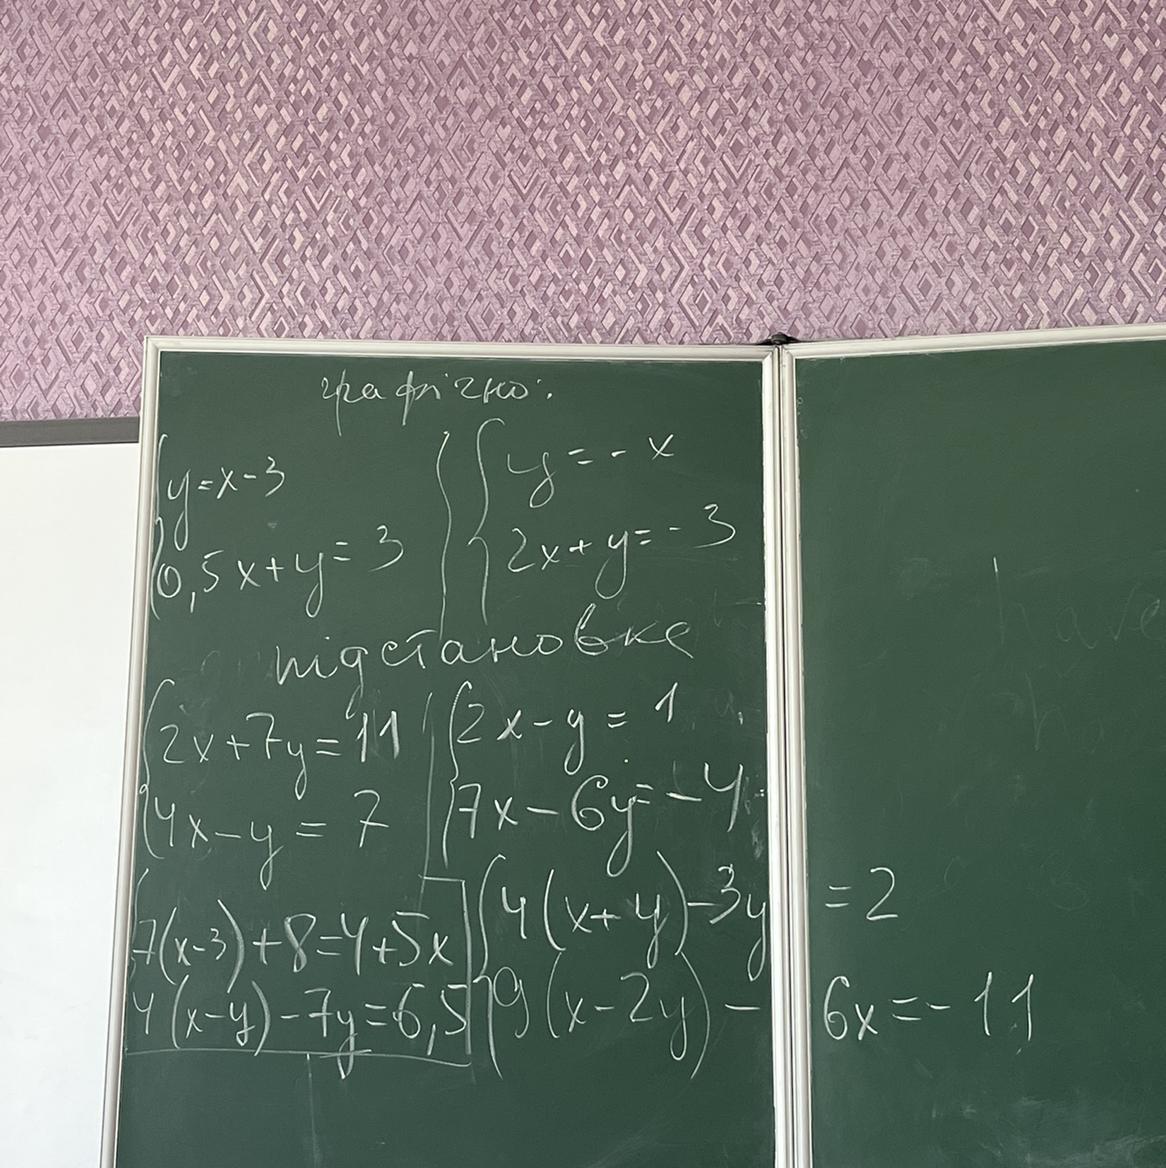 графічно:
y=x-3
0,5x+y=3
y=-x
2x+y=-3
підстановке
2x+7y=11
4x-y=7
2x-y=1
7x-6y=-4
7(x-3)+8=4+5x
4(x-y)-7y=6,5
4(x+y)-3y=2
9(x-2y)-6x=-11
have